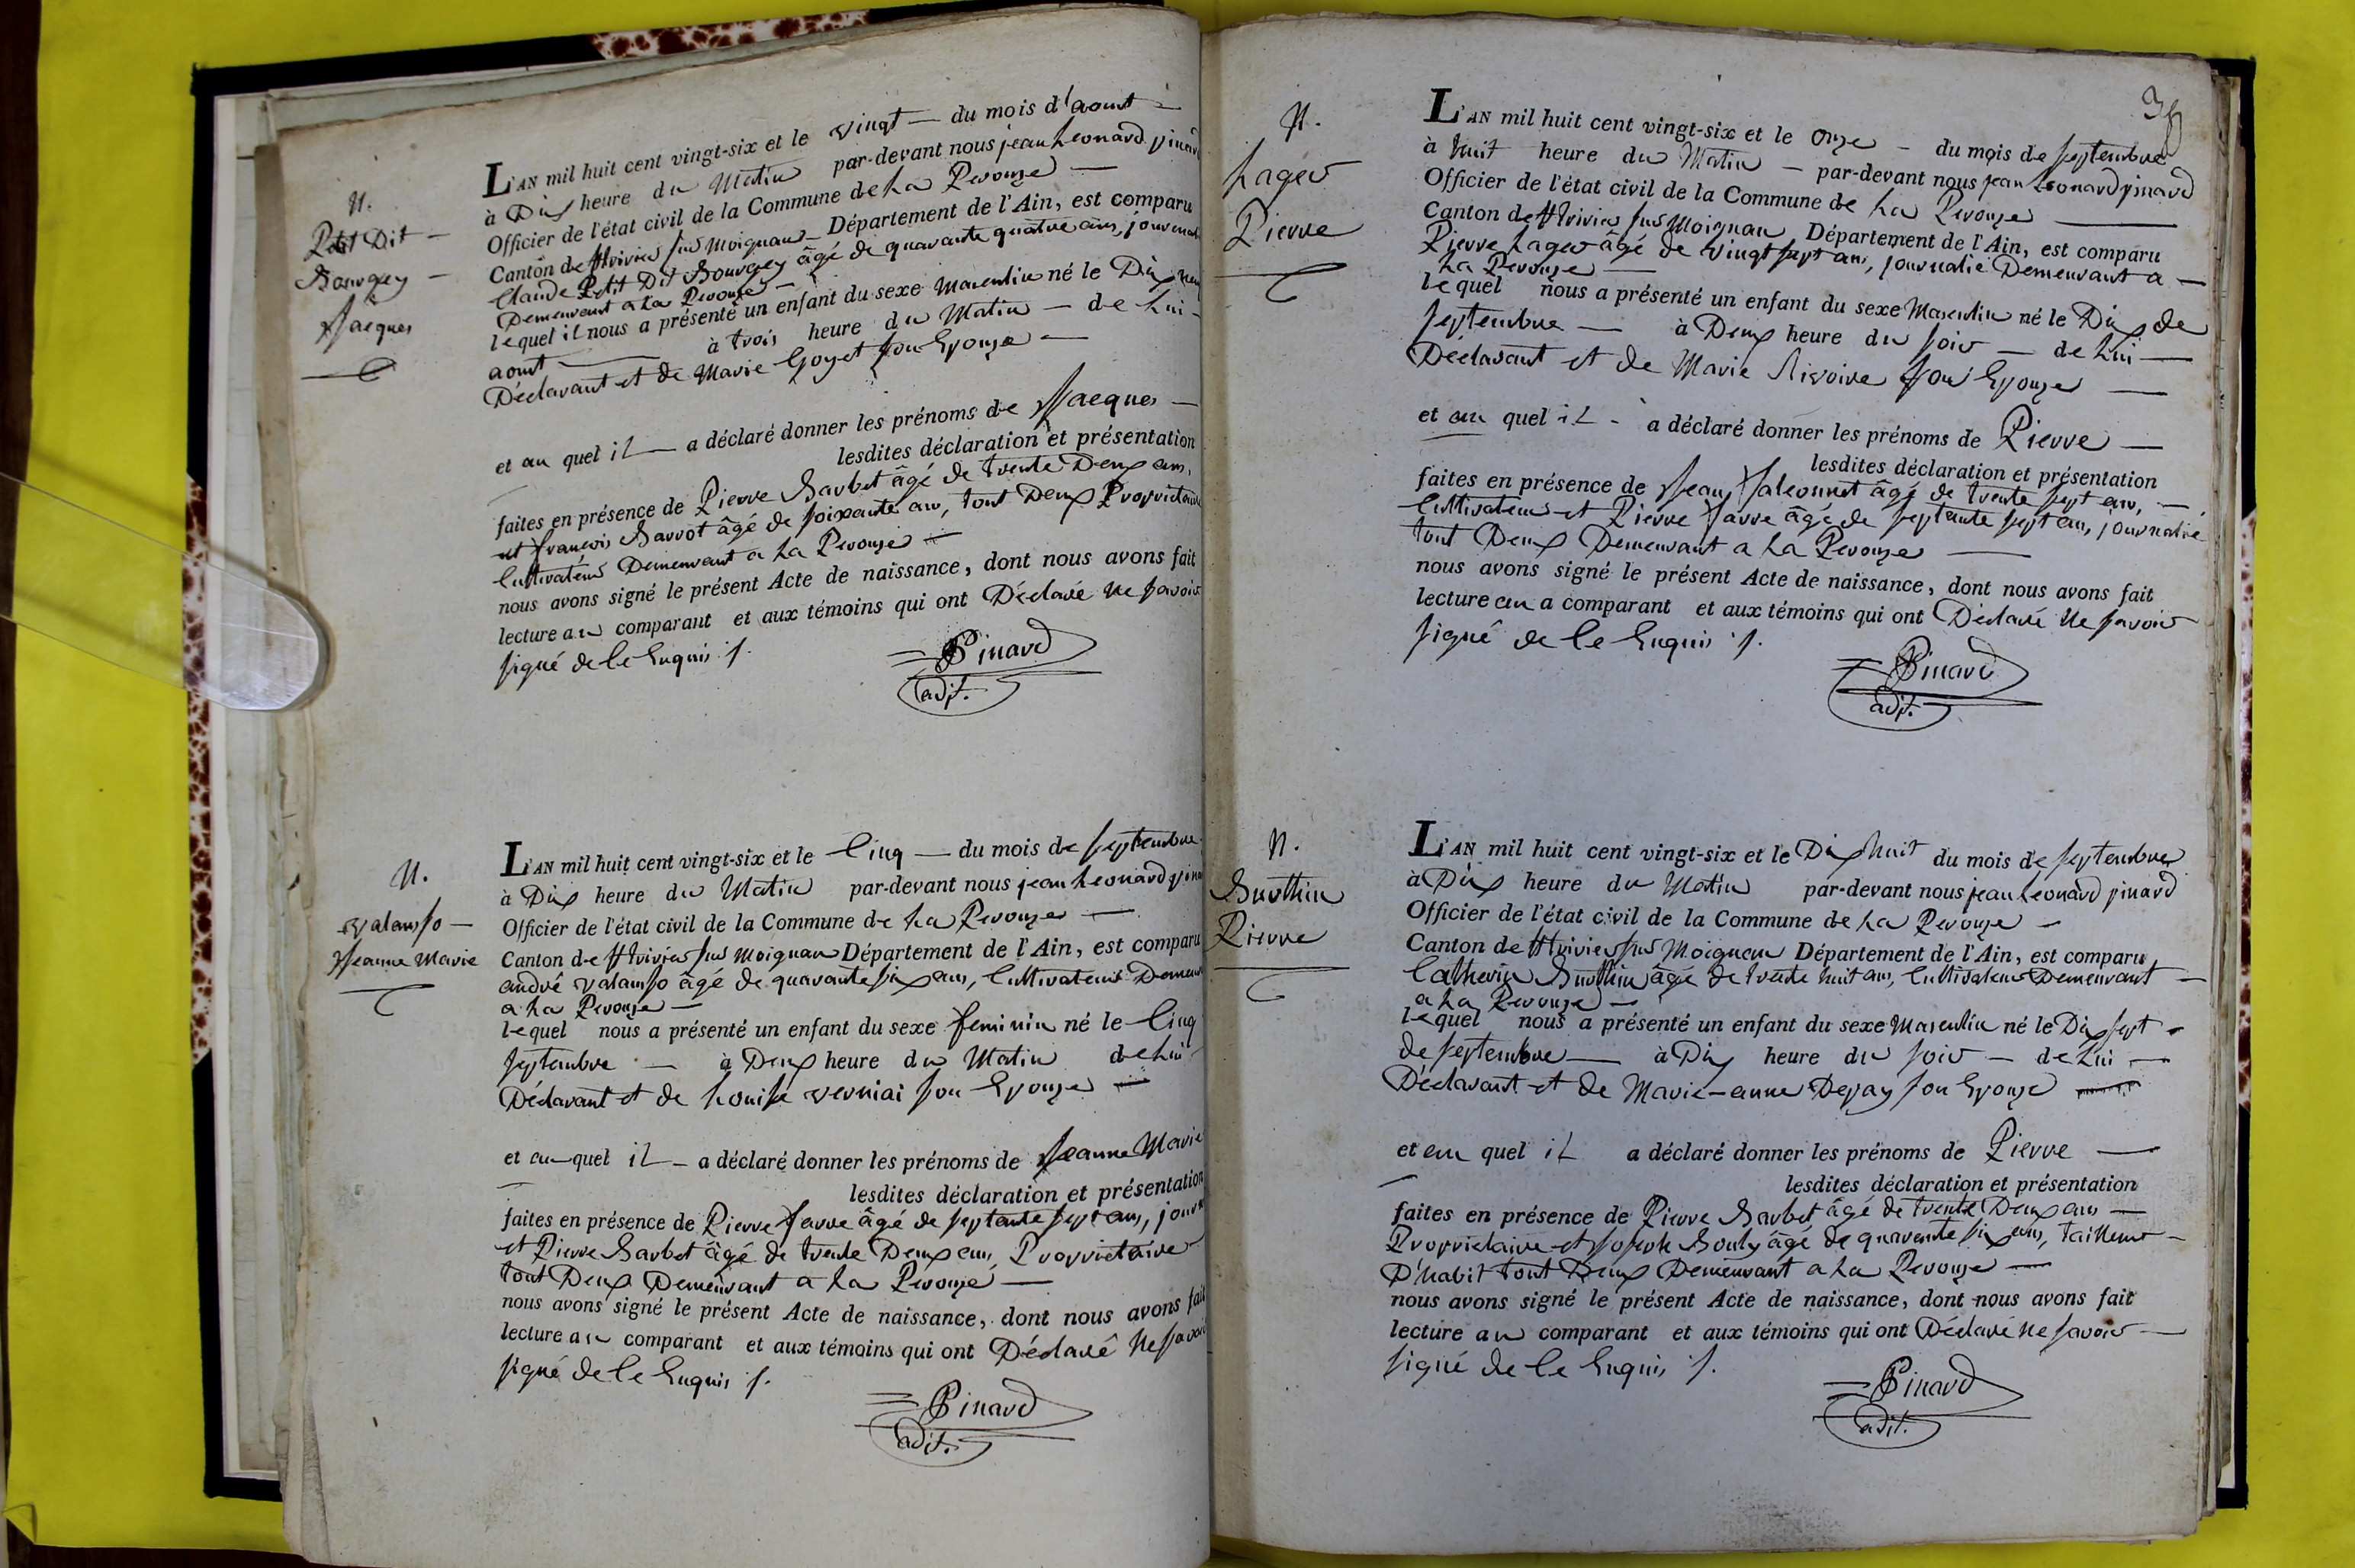 N.
Petit Dit —
Bourgey —
Jacques
L'AN mil huit cent vingt-six et le vingt — du mois d'aoust —
à Dix heure du Matin par-devant nous jean Leonard pinard
Officier de l'état civil de la Commune de La Perouze —
Canton de St trivier sur Moignans — Département de l'Ain, est comparu
Claude Petit Dit Bourgey âgé de quarante quatre ans, journali
Demeurant a La Perouze —
lequel il nous a présenté un enfant du sexe Masculin né le Dix neuf
aoust — à trois heure du Matin — de Lui —
Déclarant et de Marie Goyet son Epouze —
et au quel il — a déclaré donner les prénoms de Jacques —
lesdites déclaration et présentation
faites en présence de Pierre Barbet âgé de trente Deux ans,
et françois Barrot âgé de soixante ans, tout Deux Proprietaire
Cultivateur Demeurant a La Perouze —
nous avons signé le présent Acte de naissance, dont nous avons fait
lecture au comparant et aux témoins qui ont Déclaré ne savoir
signé de Ce Enquis /.
Pinard
adjt.
N.
valanso —
Jeanne Marie
L'AN mil huit cent vingt-six et le Cinq — du mois de septembre
à Dix heure du Matin par-devant nous jean Leonard pina
Officier de l'état civil de la Commune de La Perouze —
Canton de St trivier sur Moignans Département de l'Ain, est comparu
andré valanso âgé de quarante six ans, Cultivateur Demeur
a La Perouze —
lequel nous a présenté un enfant du sexe feminin né le Cinq
septembre — à Deux heure du Matin de Lui
Déclarant et de Louise verniai son Epouze —
et au quel il — a déclaré donner les prénoms de Jeanne Marie
lesdites déclaration et présentation
faites en présence de Pierre favre âgé de septante sept ans, journ
et Pierre Barbet âgé de trente Deux ans, Proprietaire
tout Deux Demeurant a La Perouze —
nous avons signé le présent Acte de naissance, dont nous avons fait
lecture au comparant et aux témoins qui ont Déclaré Ne savoir
signé de Ce Enquis /.
Pinard
adjt.
N.
Lager
Pierre
L'AN mil huit cent vingt-six et le onze — du mois de septembre
à huit heure du Matin — par-devant nous jean Leonard pinard
Officier de l'état civil de la Commune de La Perouze —
Canton de St trivier sur Moignan Département de l'Ain, est comparu
Pierre Lager âgé de vingt sept ans, journalié Demeurant a —
La Perouze —
lequel nous a présenté un enfant du sexe Masculin né le Dix de
septembre — à Deux heure du soir — de Lui —
Déclarant et de Marie Rivoire son Epouze —
et au quel il - a déclaré donner les prénoms de Pierre —
lesdites déclaration et présentation
faites en présence de Jean falconnet âgé de trente sept ans, —
Cultivateur et Pierre favre âgé de septante sept ans, journalié
tout Deux Demeurant a La Perouze —
nous avons signé le présent Acte de naissance, dont nous avons fait
lecture au a comparant et aux témoins qui ont Déclaré Ne savoir
signé de Ce Enquis /.
Pinard
adjt.
N.
Burthin
Pierre
L'AN mil huit cent vingt-six et le Dix huit du mois de septembre
à Dix heure du Matin par-devant nous jean Leonard pinard
Officier de l'état civil de la Commune de La Perouze —
Canton de St trivier sur Moignan Département de l'Ain, est comparu
Catherin Burthin âgé de trente huit ans, Cultivateur Demeurant —
a La Perouze —
lequel nous a présenté un enfant du sexe Masculin né le Dix sept -
de septembre — à Dix heure du soir — de Lui —
Déclarant et de Marie-anne Depay son Epouze —
et au quel il a déclaré donner les prénoms de Pierre —
lesdites déclaration et présentation
faites en présence de Pierre Barbet âgé de trente Deux ans —
Proprietaire et joseph Bouly âgé de quarante six ans, tailleur —
D'habit tout Deux Demeurant a La Perouze —
nous avons signé le présent Acte de naissance, dont nous avons fait
lecture au comparant et aux témoins qui ont Déclaré Ne savoir —
signé de Ce Enquis /.
Pinard
adjt.